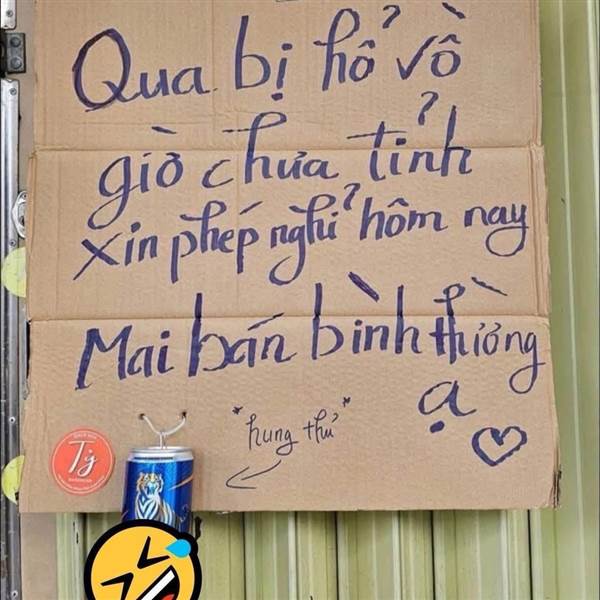 Qua bị hổ vồ
giờ chưa tỉnh
xin phép nghỉ hôm nay
Mai bán bình thường
ạ
"hung thủ"
Tỷ